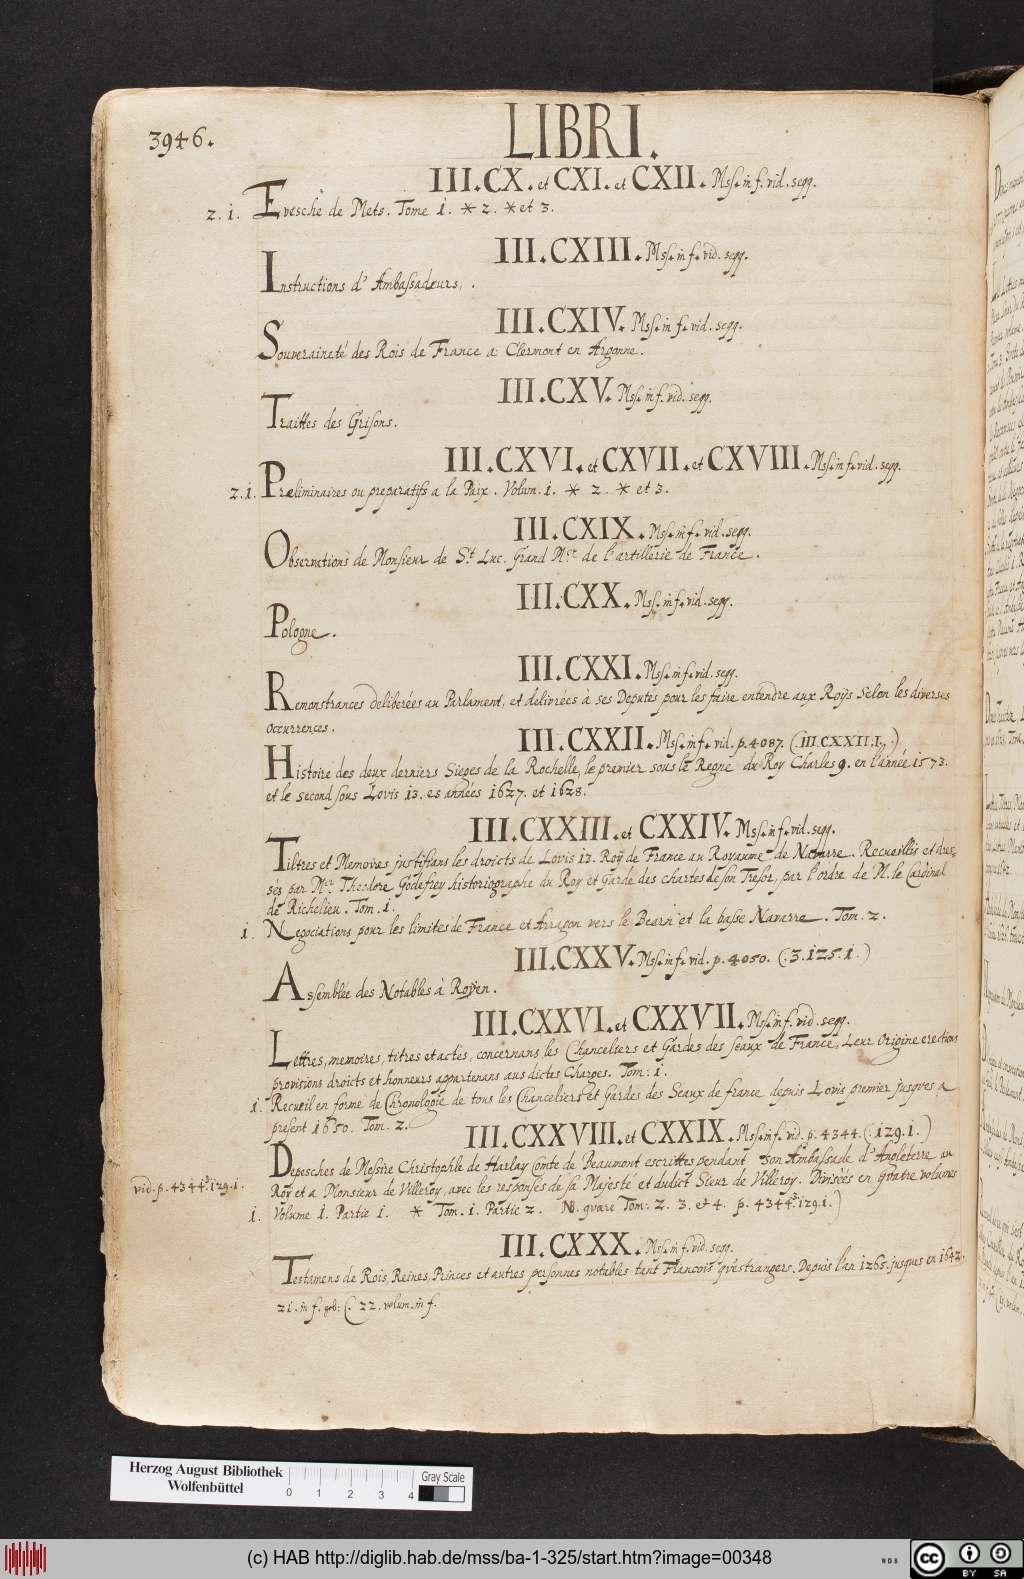 3946.
LIBRI.
III.CX. et CXI. et CXII. Mss. in f. vid. seqq.
2. 1. Evesché de Mets. Tome 1. * 2. * et 3.
III.CXIII. Mss. in f. vid. seqq.
Instructions d' Ambassadeurs.
III.CXIV. Mss. in f. vid. seqq.
Souveraineté des Rois de France a Clermont en Argonne.
III.CXV. Mss. in f. vid. seqq.
Traittes des Grisons.
III.CXVI. et CXVII. et CXVIII. Mss. in f. vid. seqq.
2. 1. Præliminaires ou preparatifs a la Paix. Volum. 1. * 2. * et 3.
III.CXIX. Mss. in f. vid. seqq.
Observations de Monsieur de St. Luc. Grand Mre. de l'artillerie de France.
III.CXX. Mss. in f. vid. seqq.
Pologne.
III.CXXI. Mss. in f. vid. seqq.
Remonstrances deliberées au Parlament, et delivrées à ses Deputés pour les faire entendre aux Roÿs Selon les diverses
occurrences.
III.CXXII. Mss. in f. vid. p. 4087. (.III.CXXII.I.)
Histoire des deux derniers Sieges de la Rochelle, le premier sous le Regne du Roy Charles 9. en l'année 1573.
et le second sous Lovis 13. es années 1627. et 1628.
III.CXXIII. et CXXIV. Mss. in f. vid. seqq.
Tiltres et Memoires justifians les droicts de Lovis 13. Roÿ de France au Royaume de Navarre. Recueillis et dres-
sés par Mr. Theodore Godefrey historiographe du Roy et Garde des chartes de son Tresor, par l'ordre de M. le Cardinal
de Richelieu. Tom. 1.
1. Negociations pour les limites de France et Arragon vers le Bearn et la basse Navarre. Tom. 2.
III.CXXV. Mss. in f. vid. p. 4050. (.3.125.1.)
Assemblée des Notables à Royen.
III.CXXVI. et CXXVII. Mss. in f. vid. seqq.
Lettres, memoires, titres et actes, concernans les Chanceliers et Gardes des seaux de France, Leur Origine erections
provisions droicts et honneurs appartenans aus dictes Charges. Tom: 1.
1. Recueil en forme de Chronologie de tous les Chanceliers et Gardes des Seaux de france depuis Lovis premier jusques a
present 1650. Tom. 2.
III.CXXVIII. et CXXIX. Mss. in f. vid. p. 4344. (.129.1.)
Depesches de Messire Christophle de Harlay Comte de Beaumont escrittes pendant son Ambassade d'Angleterre au
vid. p. 4344. 129.1.
Roy et a Monsieur de Villeroy, avec les responses de sa Majesté et dudict Sieur de Villeroy. Divisées en Quatre volumes
1. Volume 1. Partie 1. * Tom. 1. Partie 2. NB. quære Tom: 2. 3. et 4. p. 4344. 129.1.)
III.CXXX. Mss. in f. vid. seqq.
Testamens de Rois, Reines, Princes et autres personnes notables tant Francois qu'estrangers. Depuis l'an 1265. jusques en 1642.
21. in f. geb: (. 22. volum. in f.
Herzog August Bibliothek
Wolfenbüttel
0 1 2 3 4
Gray Scale
(c) HAB http://diglib.hab.de/mss/ba-1-325/start.htm?image=00348
WDB
cc BY SA